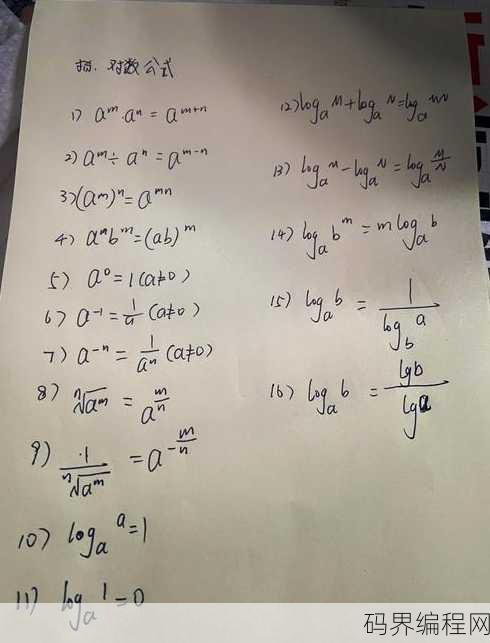 指、对数公式
1) aᵐ·aⁿ = aᵐ⁺ⁿ
2) aᵐ÷aⁿ = aᵐ⁻ⁿ
3) (aᵐ)ⁿ = aᵐⁿ
4) aᵐbᵐ = (ab)ᵐ
5) a⁰ = 1 (a≠0)
6) a⁻¹ = 1/a (a≠0)
7) a⁻ⁿ = 1/aⁿ (a≠0)
8) ⁿ√aᵐ = a^(m/n)
9) 1/ⁿ√aᵐ = a^(-m/n)
10) logₐ a = 1
11) logₐ 1 = 0
12) logₐ M + logₐ N = logₐ MN
13) logₐ M - logₐ N = logₐ M/N
14) logₐ bᵐ = m logₐ b
15) logₐ b = 1/log_b a
16) logₐ b = lgb/lga
码界编程网